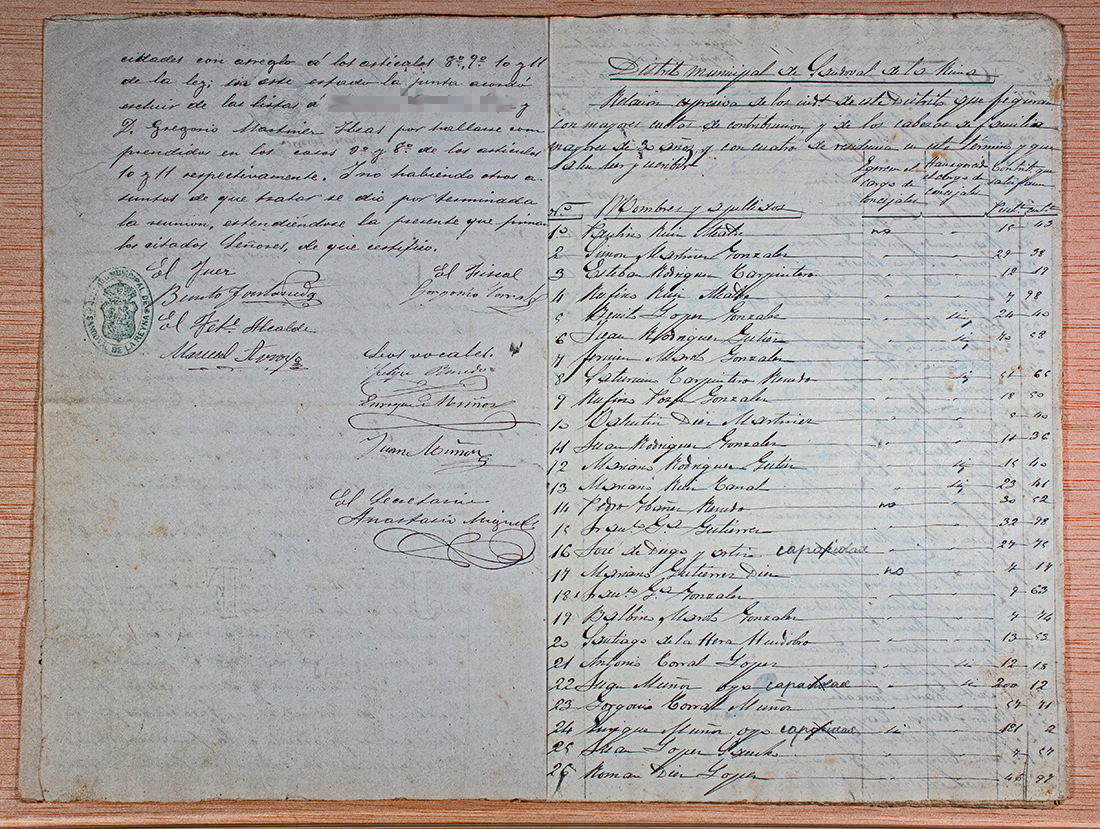 citados con arreglo á los articulos 8º, 9º 10 y 11
de la ley; en este estado la junta acordó
escluir de las listas á
y
D. Gregorio Martinez Ibeas por hallarse com
prendidos en los casos 2º y 8º de los articulos
10 y 11 respectivamente. Y no habiendo otros a-
suntos de que tratar se dió por terminada
la reunion, estendiéndose la presente que firman
los citados Señores, de que certifico.
El Juez
El Fiscal
Benito
Gorgonio Corral
El Alcalde
Manuel Arroyo
Los vocales.
Felipe
Enrique Muñoz
Juan Muñoz
El Secretario
Anastasio Miguel
MUNICIPAL DE
DE LA REYNA
Distrito municipal de Sandoval de la Reina
Relacion espresiva de los inds. de este Distrito que figuran
con mayores cuotas de contribucion y de los cabezas de familia
mayores de años y con cuatro de residencia en este termino y que
saben leer y escribir
Egercen el cargo de concejales
el cargo de concejales
Contribn. que satisfacen
Nº Nombres y apellidos
1º Paulino Ruiz no 15 43
2 Simon Martinez Gonzalez 29 38
3 Esteban Rodriguez Carpintero 12 19
4 Rufino Ruiz 7 98
5 Benito Lopez Gonzalez si 24 40
6 Juan Rodriguez Gutier si 40 58
7 Fermin Marot Gonzalez
8 Saturnino Carpintero Renedo si 51 65
9 Rufino Gonzalez 18 50
10 Valentin Diez Martinez 40
11 Juan Rodriguez Gonzalez 11 36
12 Mariano Rodriguez Gutier si 15 40
13 Mariano Ruiz si 23 41
14 Pedro Ibañez Renedo no 30 52
15 Franco. Ga. Gutierrez 32 98
16 José de Diego y capacidad 27 75
17 Mariano Gutierrez Diez no 4 17
18 Franco. Ga. Gonzalez 9 63
19 Balbino Marot Gonzalez 4 74
20 Santiago de la Hera Huidobro 13 53
21 Antonio Corral Lopez si 12 18
22 Muñoz capacidad si 200 12
23 Gorgonio Corral Muñoz 57 71
24 Enrique Muñoz capacidad si 181 2
25 Juan Lopez 4 57
26 Roman Diez Lopez 46 97